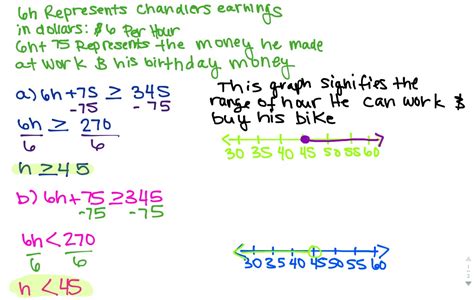 6h Represents Chandlers earnings
in dollars: $6 Per Hour
6h+ 75 Represents the money he made
at work & his birthday money
This graph signifies the
range of hour He can work &
buy his bike
a) 6h+75 ≥ 345
-75 -75
6h ≥ 270
6 6
h ≥ 45
30 35 40 45 50 55 60
b) 6h+75 ≥ 345
-75 -75
6h < 270
6 6
h < 45
30 35 40 45 50 55 60